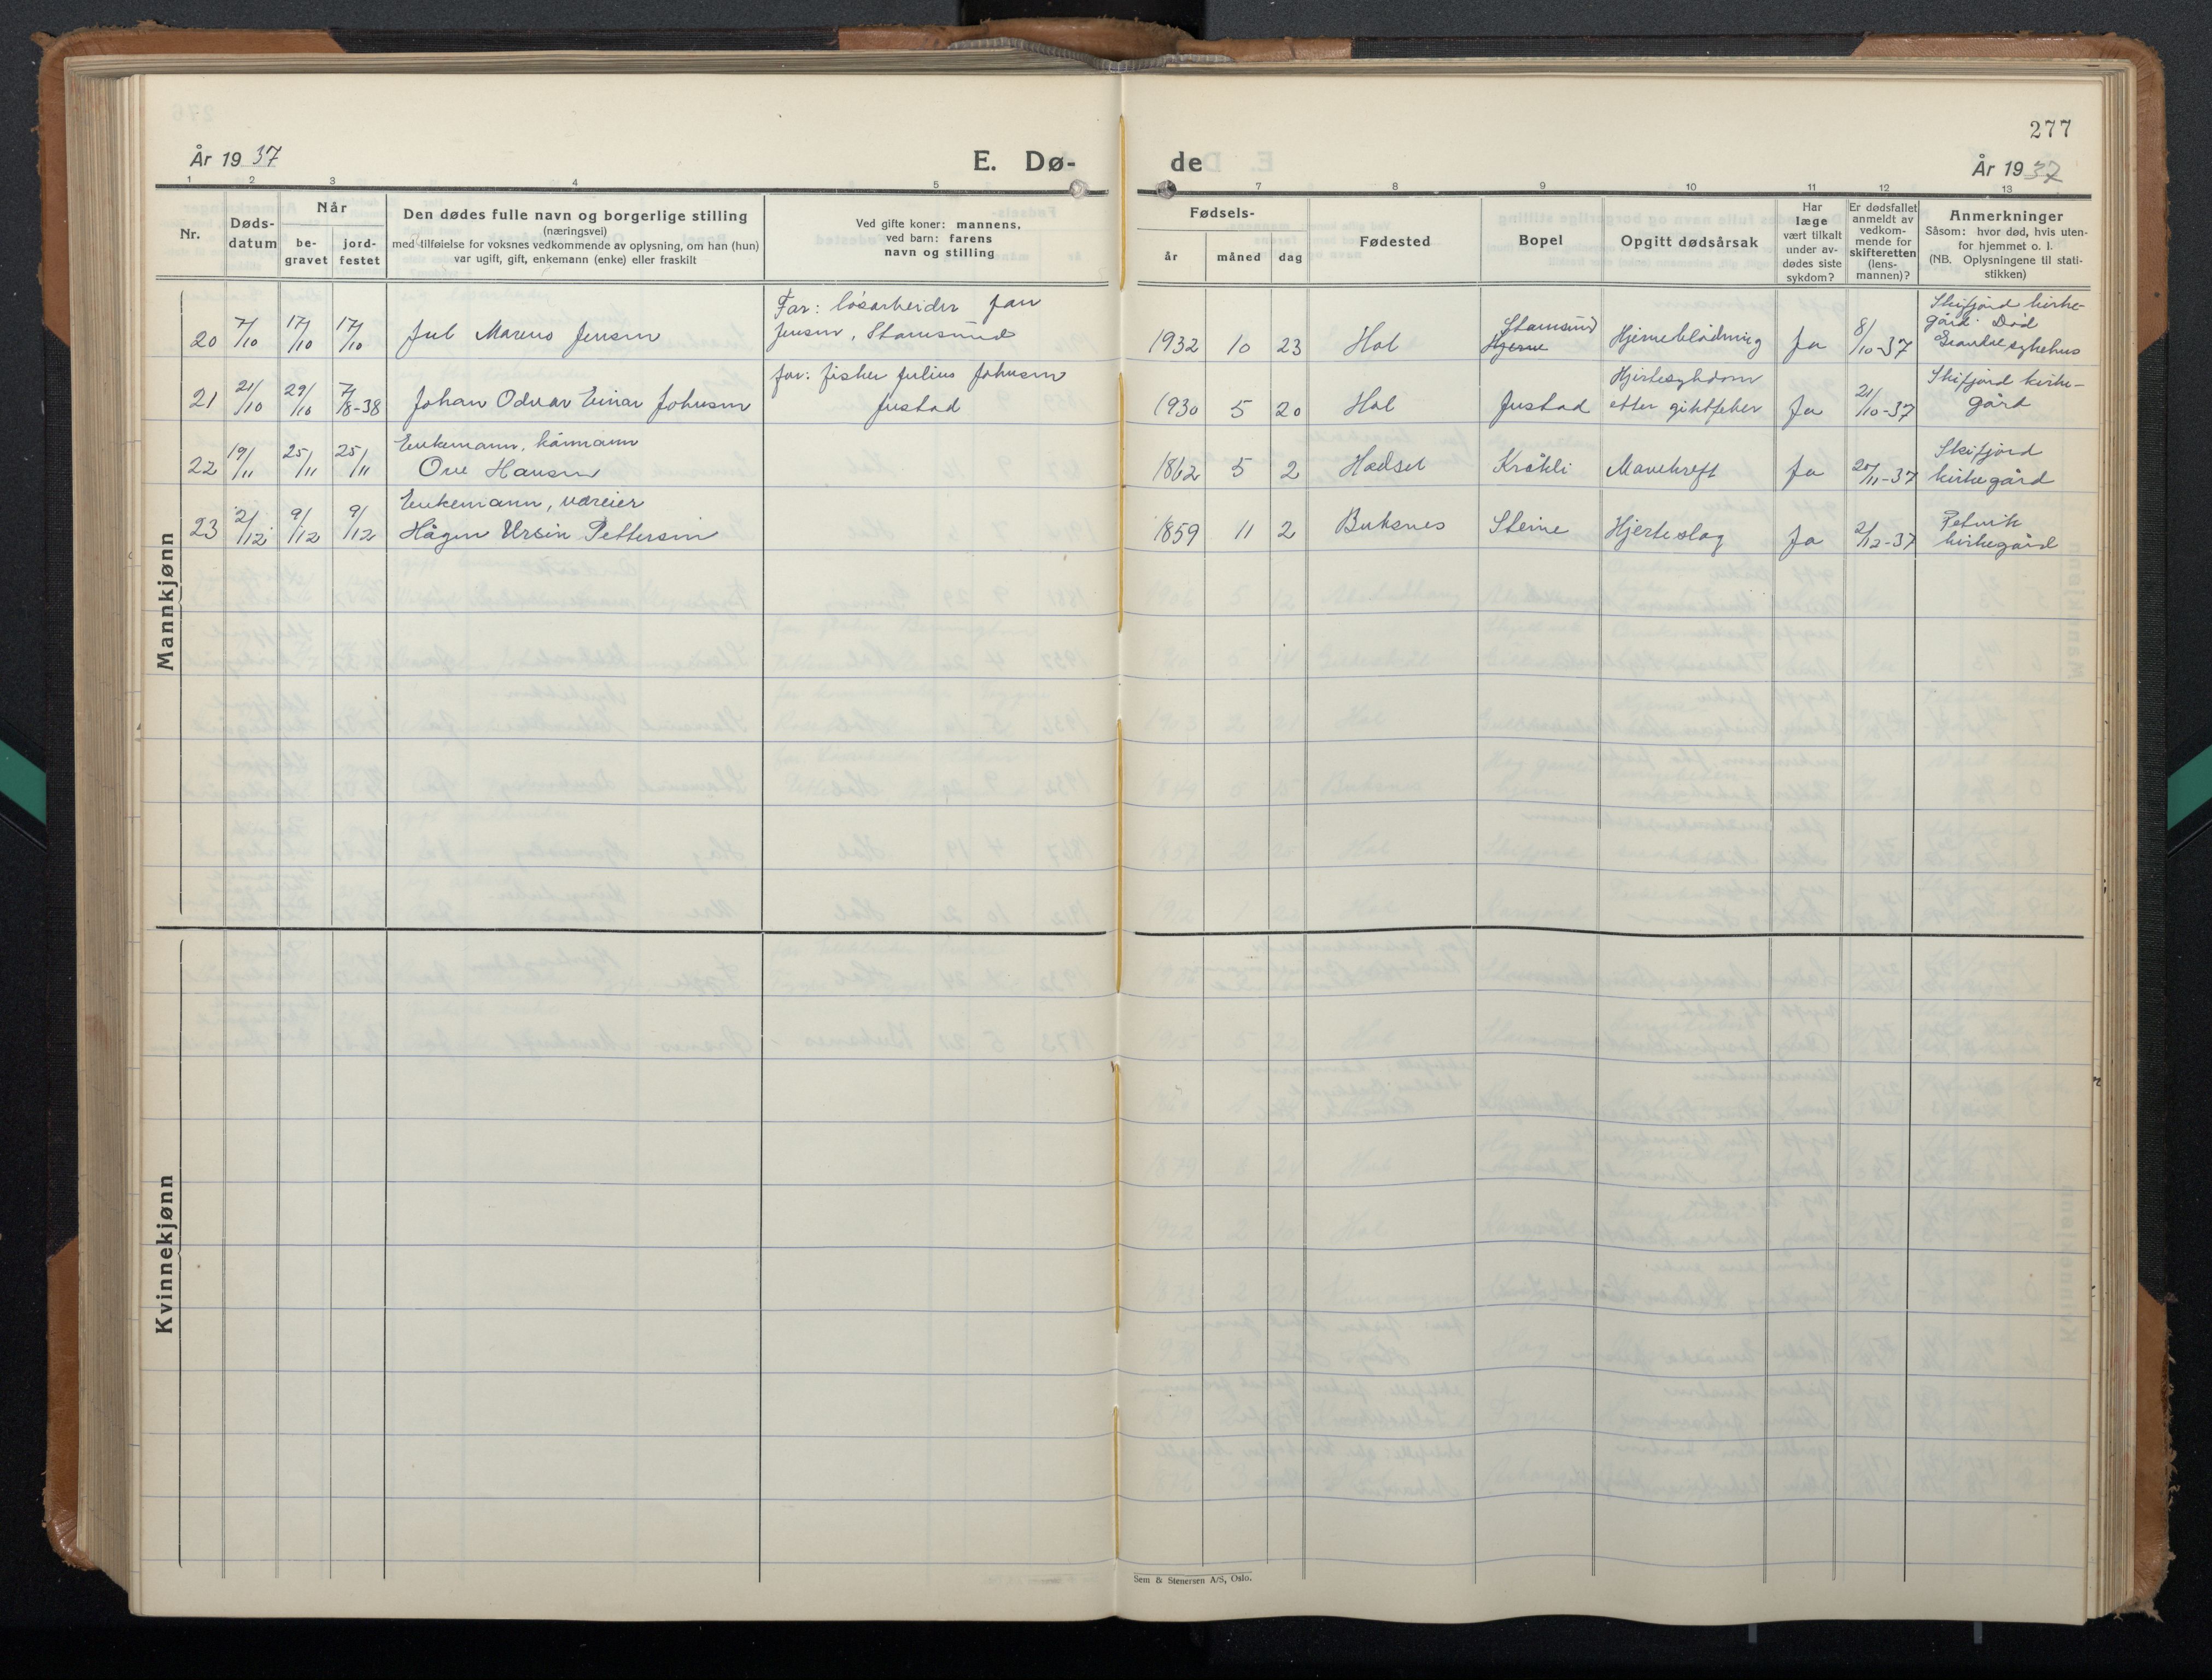 277
År 1937
E. Dø-
de
År 1937
1 2 3 4 5 7 8 9 10 11 12 13
Nr.
Døds-
datum
Når
be-
gravet
jord-
festet
Den dødes fulle navn og borgerlige stilling
(næringsvei)
med tilføielse for voksnes vedkommende av oplysning, om han (hun)
var ugift, gift, enkemann (enke) eller fraskilt
Ved gifte koner: mannens,
ved barn: farens
navn og stilling
Fødsels-
år måned dag
Fødested
Bopel
Opgitt dødsårsak
Har
læge
vært tilkalt
under av-
dødes siste
sykdom?
Er dødsfallet
anmeldt av
vedkom-
mende for
skifteretten
(lens-
mannen)?
Anmerkninger
Såsom: hvor død, hvis uten-
for hjemmet o. l.
(NB. Oplysningene til stati-
stikken)
Mannkjønn
20 7/10 17/10 17/10 Jul Marius Jensen
Far: løsarbeider Jan
Jensen, Stamsund
1932 10 23 Hol
Stamsund
Hjerne
Hjerneblødning Ja 8/10-37
Skifjord kirke-
gård. Død
Gravdal sykehus
21 21/10 29/10 7/8-38 Johan Odvar Einar Johnsen
far: fisker Julius Johnsen
Justad
1930 5 20 Hol Justad
Hjertesykdom
etter giktfeber Ja 21/10-37
Skifjord kirke-
gård
22 19/11 25/11 25/11
Enkemann, kårmann
Ove Hansen
1862 5 2 Hadsel Kråkli Mavekreft Ja 20/11-37
Skifjord
kirkegård
23 2/12 9/12 9/12
Enkemann, væreier
Hågen Ursin Pettersen
1859 11 2 Buksnes Steine Hjerteslag Ja 2/12-37
Petvik
kirkegård
Kvinnekjønn
Sem & Stenersen A/S, Oslo.